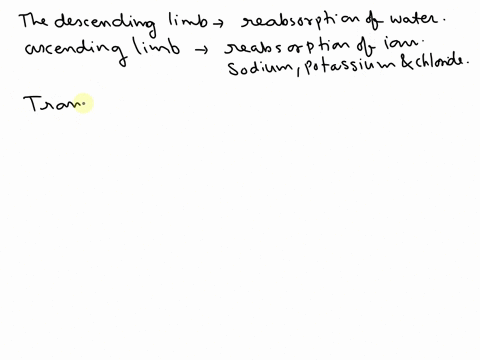 The descending limb → reabsorption of water.
ascending limb → reabsorption of ion.
Sodium, potassium & chloride.
Tran